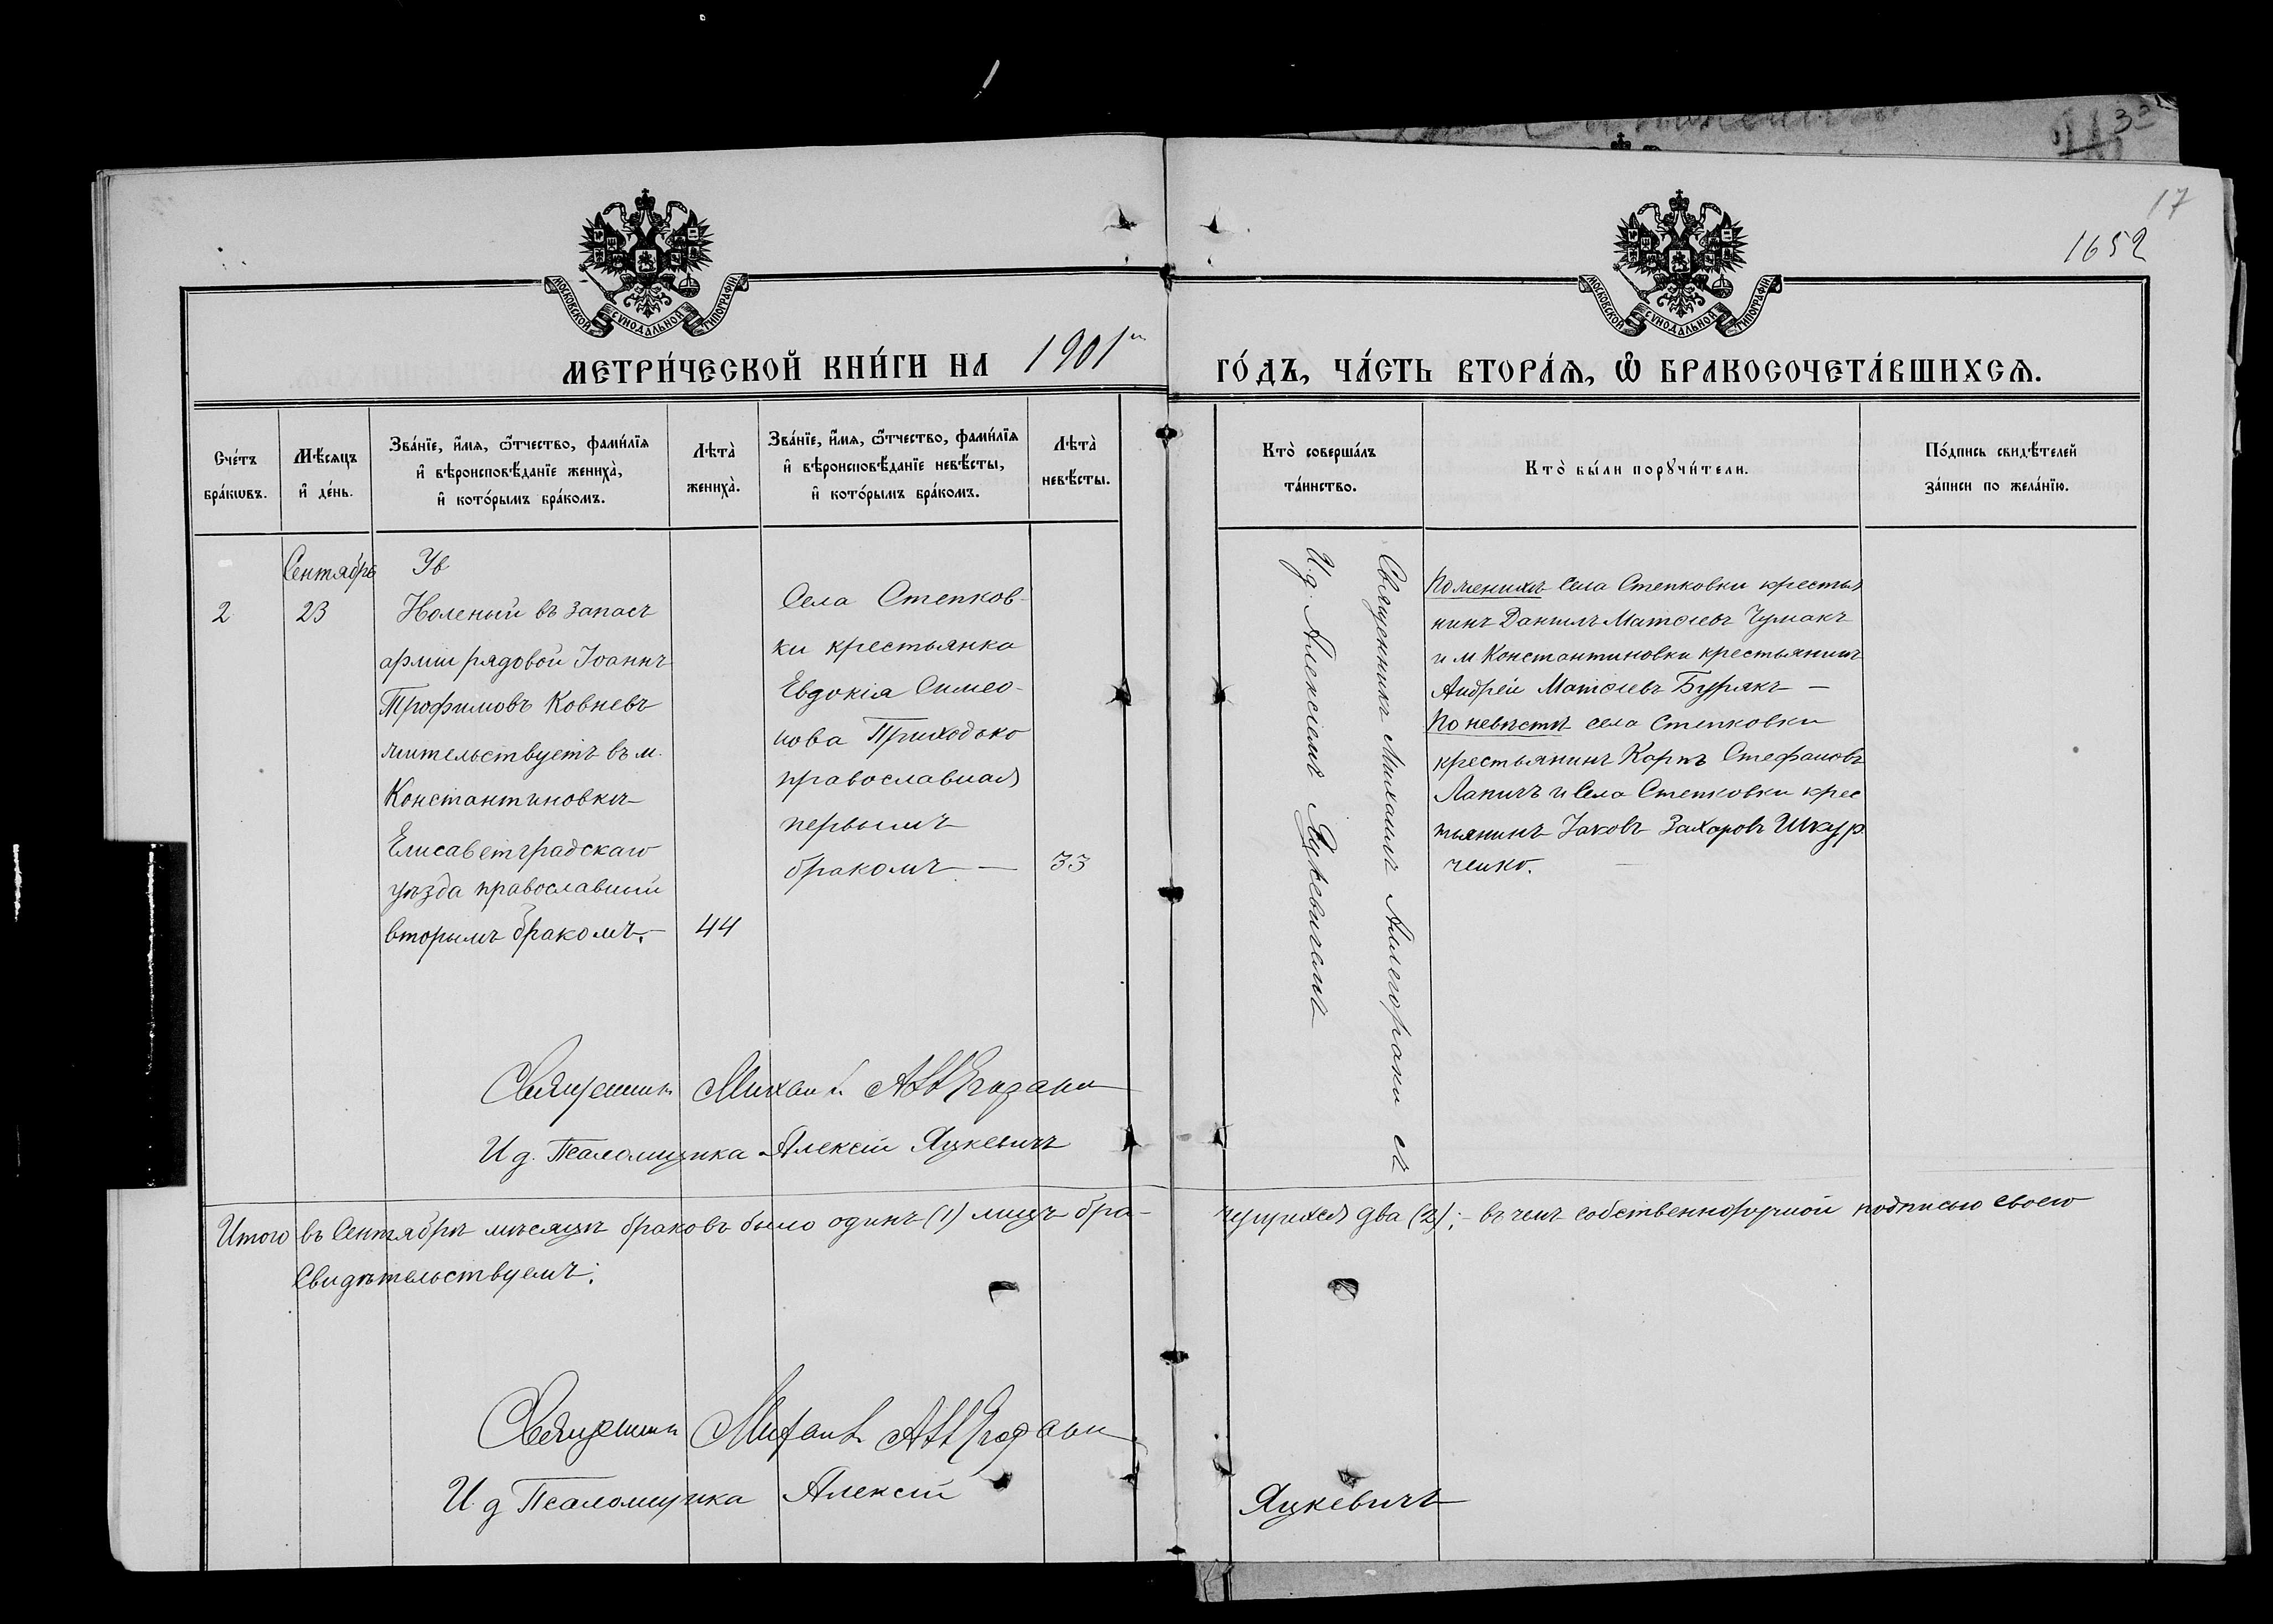 17
1652
МОСКОВСКОЙ СѴНОДАЛЬНОЙ ТИПОГРАФІИ
МОСКОВСКОЙ СѴНОДАЛЬНОЙ ТИПОГРАФІИ
МЕТРИ́ЧЕСКОЙ КНИ́ГИ НА 1901 ГО́ДЪ, ЧА́СТЬ ВТОРА́Ѧ, Ѽ БРАКОСОЧЕТА́ВШИХСѦ.
Сче́тъ бра́кѡвъ.
Мѣ́сяцъ и҆ де́нь.
Зва́нїе, и҆́мѧ, ѻ҆́тчество, фами́лїѧ
и҆ вѣроисповѣ́данїе жениха̀,
и҆ кото́рымъ бра́комъ.
Лѣта̀ жениха̀.
Зва́нїе, и҆́мѧ, ѻ҆́тчество, фами́лїѧ
и҆ вѣроисповѣ́данїе невѣ́сты,
и҆ кото́рымъ бра́комъ.
Лѣта̀ невѣ́сты.
Кто̀ соверша́лъ та́инство.
Кто̀ бы́ли порꙋчи́тели.
По́дпись свидѣ́телей за́писи по жела́нїю.
2
Сентябрь
23
Ув
ноленый въ запасъ
арміи рядовой Іоаннъ
Трофимовъ Ковневъ
жительствуетъ въ м.
Константиновкѣ
Елисаветградскаго
уѣзда православный
вторымъ бракомъ.—
44
Села Степков-
ки крестьянка
Евдокія Симео-
нова Приходько
православная
первымъ
бракомъ —
33
Священникъ Михаилъ Аллегорани съ
И.д. Алексіемъ Яцкевичемъ
По женихѣ села Степковки крестья
нинъ Даніилъ Матѳіевъ Чумакъ
и м Константиновки крестьянинъ
Андрей Матѳіевъ Бурякъ —
По невѣстѣ села Степковки
крестьянинъ Карпъ Стефановъ
Лапичъ и села Степковки крес
тьянинъ Іаковъ Захаровъ Шкур
ченко.
Священникъ Михаилъ
И д. Псаломщика Алексій Яцкевичъ
Итого въ Сентябрѣ мѣсяцѣ браковъ было одинъ (1) лицъ бра-чущихся два (2); – въ чемъ собственноручной подписью своею
свидѣтельствуемъ:
Священникъ Михаилъ
И д Псаломщика Алексій Яцкевичъ